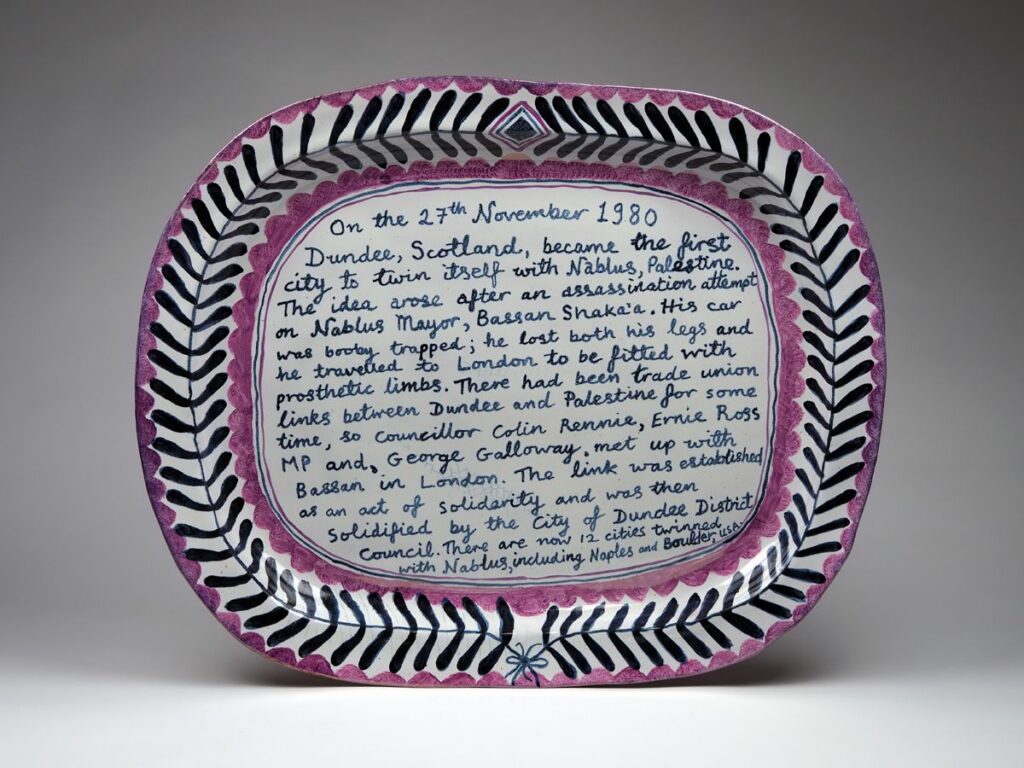 On the 27th November 1980
Dundee, Scotland, became the first
city to twin itself with Nablus, Palestine.
The idea arose after an assassination attempt
on Nablus Mayor, Bassan Shaka'a. His car
was booby trapped; he lost both his legs and
he travelled to London to be fitted with
prosthetic limbs. There had been trade union
links between Dundee and Palestine for some
time, so councillor Colin Rennie, Ernie Ross
MP and, George Galloway, met up with
Bassan in London. The link was established
as an act of solidarity and was then
solidified by the City of Dundee District
Council. There are now 12 cities twinned
with Nablus, including Naples and Boulder, USA.